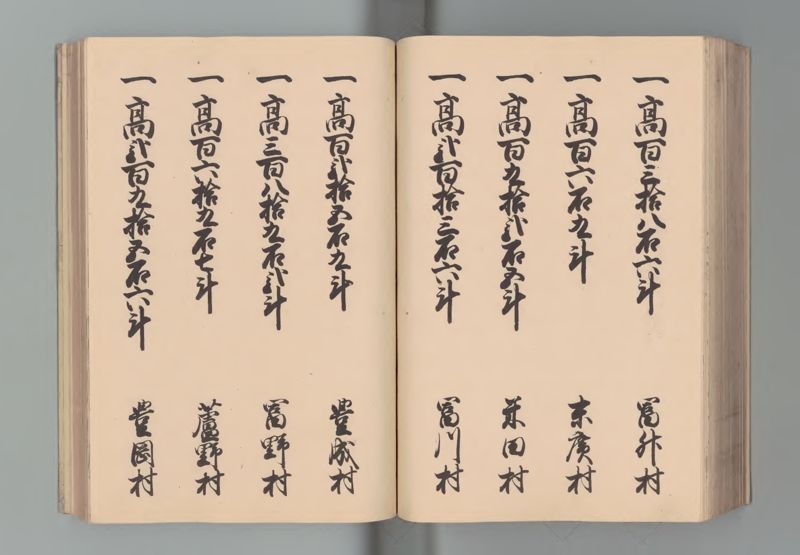 一高百三拾八石六斗 冨外村
一高百六石九斗 末廣村
一高百九拾弐石五斗 米田村
一高弐百拾三石六斗 冨川村
一高百弐拾五石九斗 豊成村
一高三百八拾九石弐斗 冨野村
一高百六拾九石七斗 蘆野村
一高弐百九拾五石六斗 豊岡村